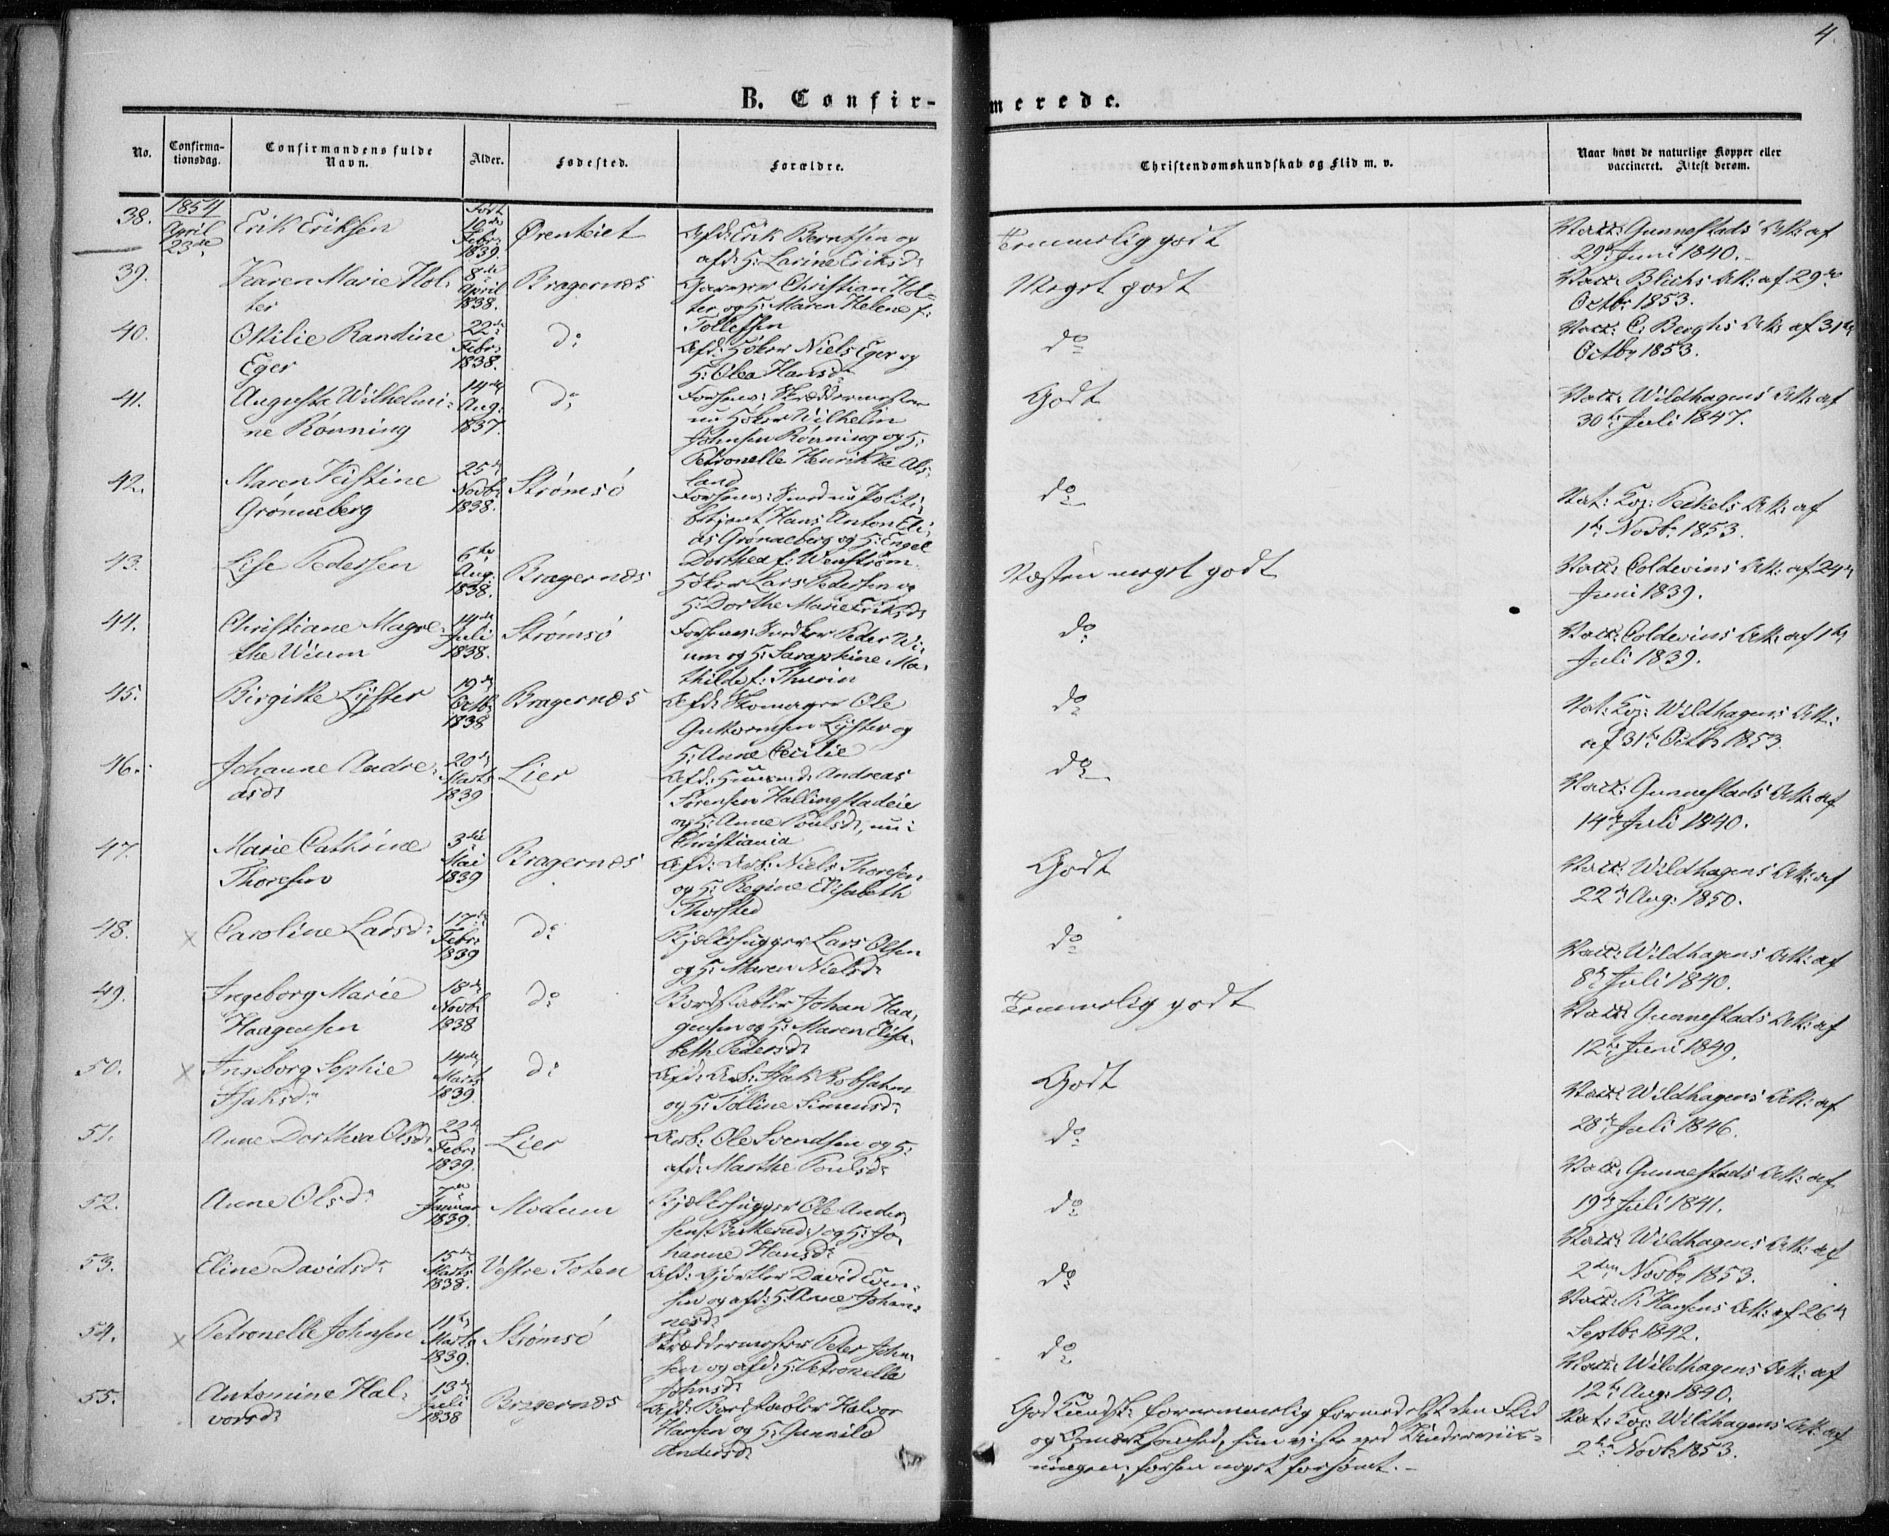 4.
B. Confir-
merede.
No.
Confirma-
tionsdag.
Confirmandens fulde
Navn.
Alder.
Fødested.
Forældre.
Christendomskundskab og Flid m. v.
Naar havt de naturlige Kopper eller
vaccineret. Attest derom.
38. 1854 April 23de Erik Eriksen Født 10de Febr: 1839. Ørenkiet Afd: Erik Berntsen og
afd: H: Larine Eriksd:
Temmelig godt
Vacc: Gunnestads Att: af
29de Juni 1840.
39. Karen Marie Hol-
ter
8de April 1838. Bragernæs Christian Hol-
ter og H: Maren Helene f:
Tollefsen
Meget godt
Vacc: Blichs Att: af 29de
Octbr 1853.
40. Ottilie Randine
Eger
22de Febr: 1838. do Afd: Høker Niels Eger og
H: Olea Hansd:
do
Vacc: C: Berghs Att: af 31te
Octbr 1853.
41. Augusta Wilhelmi-
ne Rönning
14de Aug: 1837. do Forhenv: Skræddermester
nu Høker Wilhelm
Johnsen Rönning og H:
Petronelle Henrikke Als-
land
Godt
Vacc: Wildhagens Att: af
30te Juli 1847.
42. Maren Kistine
Grønneberg
25de Novbr 1838. Strømsö Forhenv: Smed nu Politi-
betjent Hans Anton Eli-
as Grønneberg og H: Engel
Dorthea f: Wenström
do
Nat: Kop: Att: af
1te Novbr 1853.
43. Lise Pedersen 6te Aug: 1838. Bragernæs Høker Lars Pedersen og
H: Dorthe Marie Eriksd:
Næsten meget godt
Vacc: Coldevins Att: af 24de
Juni 1839.
44. Christiane Magre-
the Wium
14de Juli 1838. Strømsö Forhenv: Snedker Peder Wi-
um og H: Seraphine Ma-
thilde f: Thurin
do
Vacc: Coldevins Att: af 1te
Juli 1839.
45. Birgitte Lyster 19de Octbr 1838 Bragernæs Afd: Skomager Ole
Guttormsen Lyster og
H: Anne Cecilie
do
Nat: Kop: Wildhagens Att:
af 31te Octbr 1853.
46. Johanne Andre-
asd:
20de Marts 1839 Lier Afd: Huusmd: Andreas
Sørensen Hallingstadeie
og H: Anne Poulsd:, nu i
Christiania
do
Vacc: Gunnestads Att: af
14de Juli 1840.
47. Marie Cathrine
Thoresen
3die Mai 1839 Bragernæs Afd: Arb: Niels Thoresen
og H: Regine Elisabeth
Thorsted
Godt
Vacc: Wildhagens Att: af
22de Aug: 1850.
48. x Caroline Larsd: 17de Febr: 1839 do Bjelkehugger Lars Olsen
og H: Maren Nielsd:
do
Vacc: Wildhagens Att: af
8de Juli 1840.
49. Ingeborg Marie
Haagensen
18de Novbr 1838 do Bordstabler Johan Haa-
gensen og H: Maren Elisa-
beth Pedersd:
Temmelig godt
Vacc: Gunnestads Att: af
12te Juni 1849.
50. x Ingeborg Sophie
Isaksd:
14de Marts 1839. do Afd: Arb: Isak Robsahm
og H: Tolline Simensd:
Godt
Vacc: Wildhagens Att: af
28de Juli 1846.
51. Anne Dorthea Olsd: 22de Febr: 1839. Lier Arb: Ole Svendsen og H:
afd: Marthe Poulsd:
do
Vacc: Gunnestads Att: af
19de Juli 1841.
52. Anne Olsd: 7de Januar 1839. Modum Bjelkehugger Ole Ander-
sen og H: Jo-
hanne Hansd:
do
Vacc: Wildhagens Att: af
2den Novbr 1853.
53. Eline Davidsd: 15de Marts 1838. Vestre Toten Afd: Gjørtler David Even-
sen og afd: H: Anne Johan-
nesd:
do
Vacc: R. Hansens Att: af 26de
Septbr 1842.
54. x Petronelle Johnsen 11te Marts 1839. Strømsö Skræddermester Peter John-
sen og afd: H: Petronelle
Johnsd:
do
Vacc: Wildhagens Att: af
12te Aug: 1840.
55. Antomine Hal-
vorsd:
13de Juli 1838 Bragernæs Afd: Bordstabler Halvor
Hansen og H: Gunnild
Andersd:
God Kundsk: fornemmelig formedelst den Flid
og Opmærksomhed, hun viste ved Underviis-
ningen; forhen noget forsömt.
Nat: Kop: Wildhagens Att: af
2den Novbr 1853.